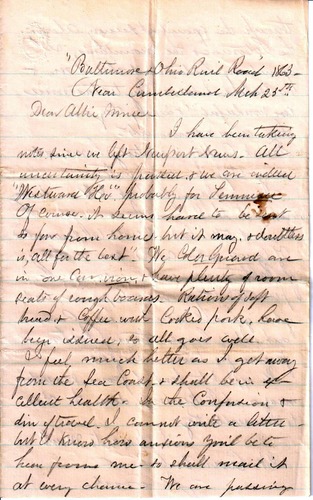 "Baltimore & Ohio Rail Road" 1863-
Near Cumberland Mch 25th
Dear Abbie
I have been taking
notes since we left Newport News. All
uncertainty is & we are
"Westward Ho", probably for
Of course it seems hard to be sent
so far from home, but it may, & doubtless
is, all for the best. We Color Guard are
in one Car, now, & have plenty of room
seats of rough boards. Rations of soft
bread & Coffee with Cooked pork, have
been issued, so all goes well.
I feel much better as I get away
from the Sea Coast, & shall be in
excellent health. In the Confusion &
din of travel, I cannot write a letter
but I know how anxious you'll be to
hear from me - so shall mail it
at every chance. We are passing